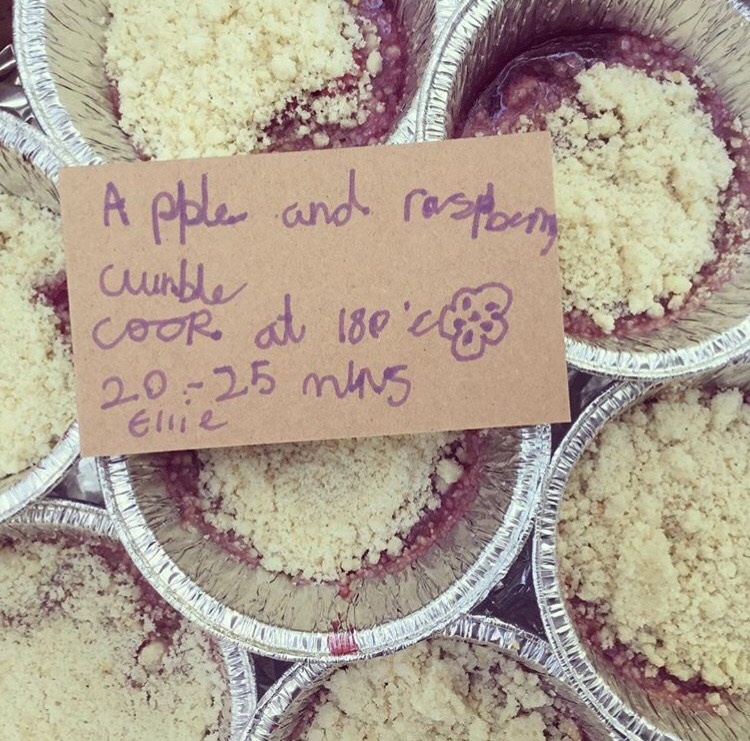 Apple and raspberry
crumble
COOK at 180°c
20-25 mins
Ellie